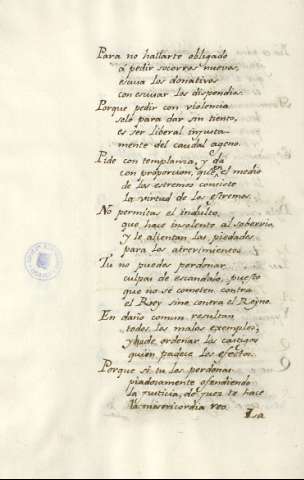 Para no hallarte obligado
à pedir socorros nuevos,
escusa los donativos
con escusar los dispendios.
Porque pedir con violencia
solo para dar sin tiento,
es ser liberal injusta-
mente del caudal ageno.
Pide con templanza, y dà
con proporcion, que en el medio
de los estremos consiste
la virtud de los estremos.
No permitas el indulto,
que hace insolente al sobervio,
y le alientan las piedades
para los atrevimientos.
Tu no puedes perdonar
culpas de escandalo, puesto
que no se cometen contra
el Rey sino contra el Reyno.
En daño comun resultan
todos los malos exemplos,
y hade ordenar los castigos
quien padece los efectos.
Porque si tu los perdonas
piadosamente ofendiendo
la Justicia, de juez te hace
la misericordia reo.
La